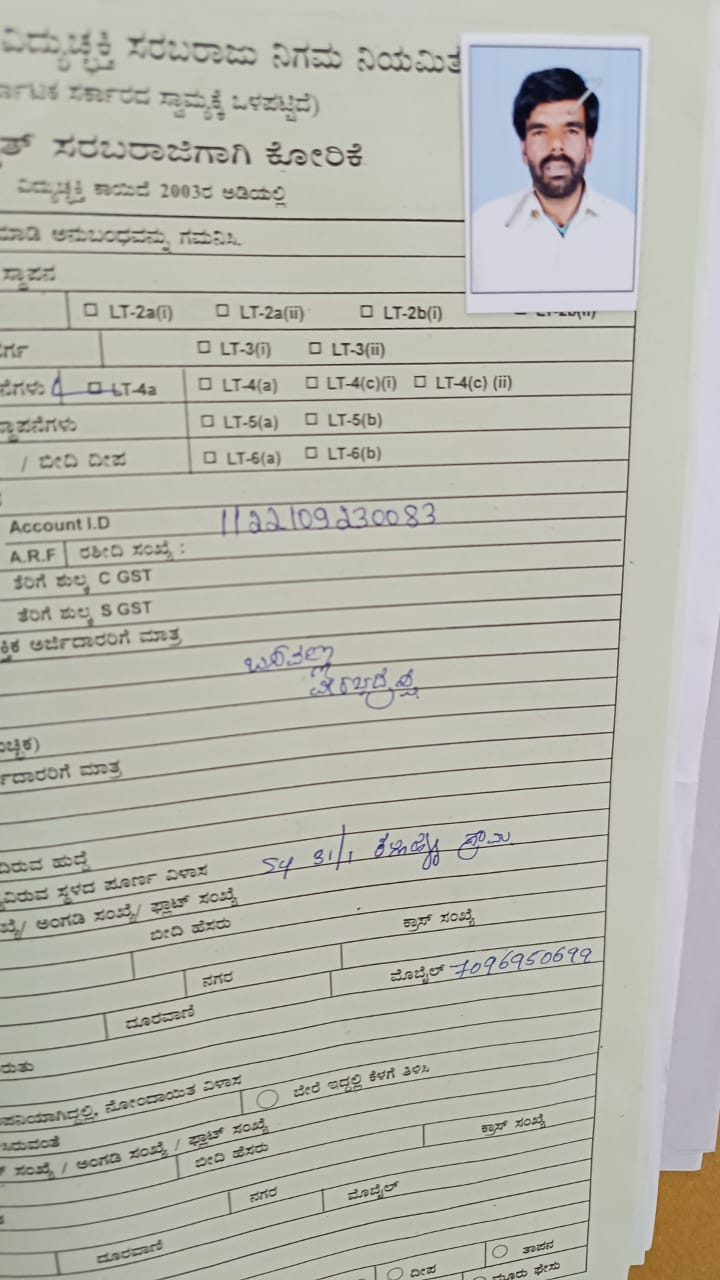 ವಿದ್ಯುಚ್ಛಕ್ತಿ ಸರಬರಾಜು ನಿಗಮ ನಿಯಮಿತ
ರ್ನಾಟಕ ಸರ್ಕಾರದ ಸ್ವಾಮ್ಯಕ್ಕೆ ಒಳಪಟ್ಟಿದೆ)
ತ್ ಸರಬರಾಜಿಗಾಗಿ ಕೋರಿಕೆ
ವಿದ್ಯುಚ್ಛಕ್ತಿ ಕಾಯಿದೆ 2003ರ ಅಡಿಯಲ್ಲಿ
ಮಾಡಿ ಅನುಬಂಧವನ್ನು ಗಮನಿಸಿ.
ಸ್ಥಾಪನ
LT-2a(i) LT-2a(ii) LT-2b(i)
ರ್ಗ LT-3(i) LT-3(ii)
ನೆಗಳು LT-4a LT-4(a) LT-4(c)(i) LT-4(c) (ii)
ಸ್ಥಾಪನೆಗಳು LT-5(a) LT-5(b)
/ ಬೀದಿ ದೀಪ LT-6(a) LT-6(b)
Account I.D 1122109230083
A.R.F ರಶೀದಿ ಸಂಖ್ಯೆ :
ತೆರಿಗೆ ಶುಲ್ಕ C GST
ತೆರಿಗೆ ಶುಲ್ಕ S GST
ಕ್ತಿಕ ಅರ್ಜಿದಾರರಿಗೆ ಮಾತ್ರ
ಬಸವಣ್ಣ
ವೀರಭದ್ರಪ್ಪ
ಚ್ಛಿಕ)
ರ್ಜಿದಾರರಿಗೆ ಮಾತ್ರ
ದಿರುವ ಹುದ್ದೆ
ವಿರುವ ಸ್ಥಳದ ಪೂರ್ಣ ವಿಳಾಸ Sy 31/1 ಗ್ರಾಮ
ಖ್ಯೆ/ ಅಂಗಡಿ ಸಂಖ್ಯೆ/ ಫ್ಲಾಟ್ ಸಂಖ್ಯೆ
ಬೀದಿ ಹೆಸರು ಕ್ರಾಸ್ ಸಂಖ್ಯೆ
ನಗರ ಮೊಬೈಲ್ 7096950699
ದೂರವಾಣಿ
ರುತು
ಪನಿಯಾಗಿದ್ದಲ್ಲಿ, ನೋಂದಾಯಿತ ವಿಳಾಸ ಬೇರೆ ಇದ್ದಲ್ಲಿ ಕೆಳಗೆ ತಿಳಿಸಿ
ಸಿರುವಂತೆ
ಸಂಖ್ಯೆ / ಅಂಗಡಿ ಸಂಖ್ಯೆ / ಫ್ಲಾಟ್ ಸಂಖ್ಯೆ
ಬೀದಿ ಹೆಸರು ಕ್ರಾಸ್ ಸಂಖ್ಯೆ
ನಗರ ಮೊಬೈಲ್
ದೂರವಾಣಿ
ದೀಪ ತಾಪನ
ಮೂರು ಫೇಸು